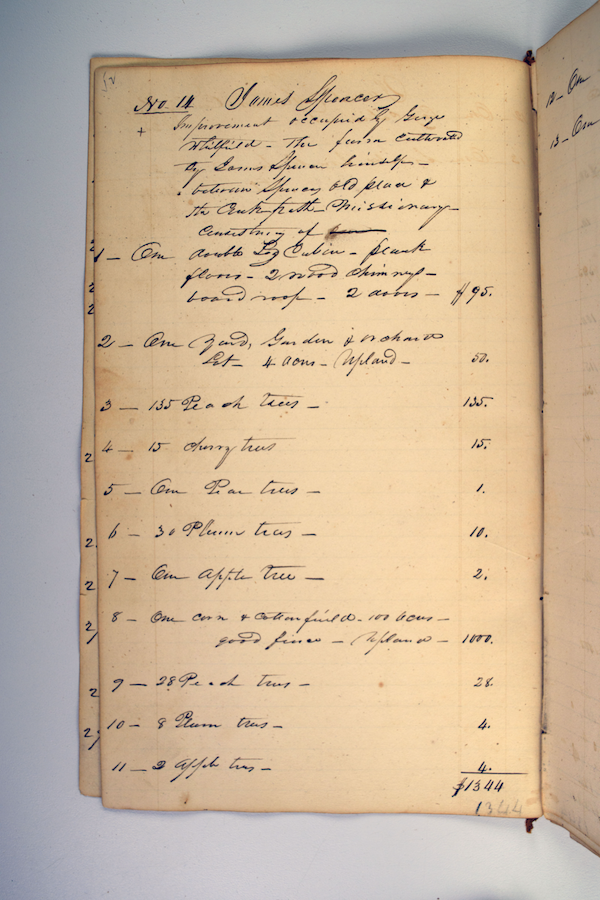 52
No 14 James Spencer
+ Improvement occupied by George
Whitfield - the farm cultivated
by James Spencer himself -
between Spencers old place &
the Creek path - Missionary -
Consisting of
1 - One double Log Cabin - plank
floors - 2 wood chimneys -
board roof - 2 doors - $95.
2 - One Yard, Garden & orchard
Lot - 4 acres - Upland - 50.
3 - 135 Peach trees - 135.
4 - 15 cherry trees 15.
5 - One Pear trees - 1.
6 - 30 Plum trees - 10.
7 - One Apple tree - 2.
8 - One corn & cottonfield - 100 acres -
good fence - Upland - 1000.
9 - 28 Peach trees - 28.
10 - 8 Plum trees - 4.
11 - 2 Apple trees - 4.
$1344
1344
12 - One
13 - One